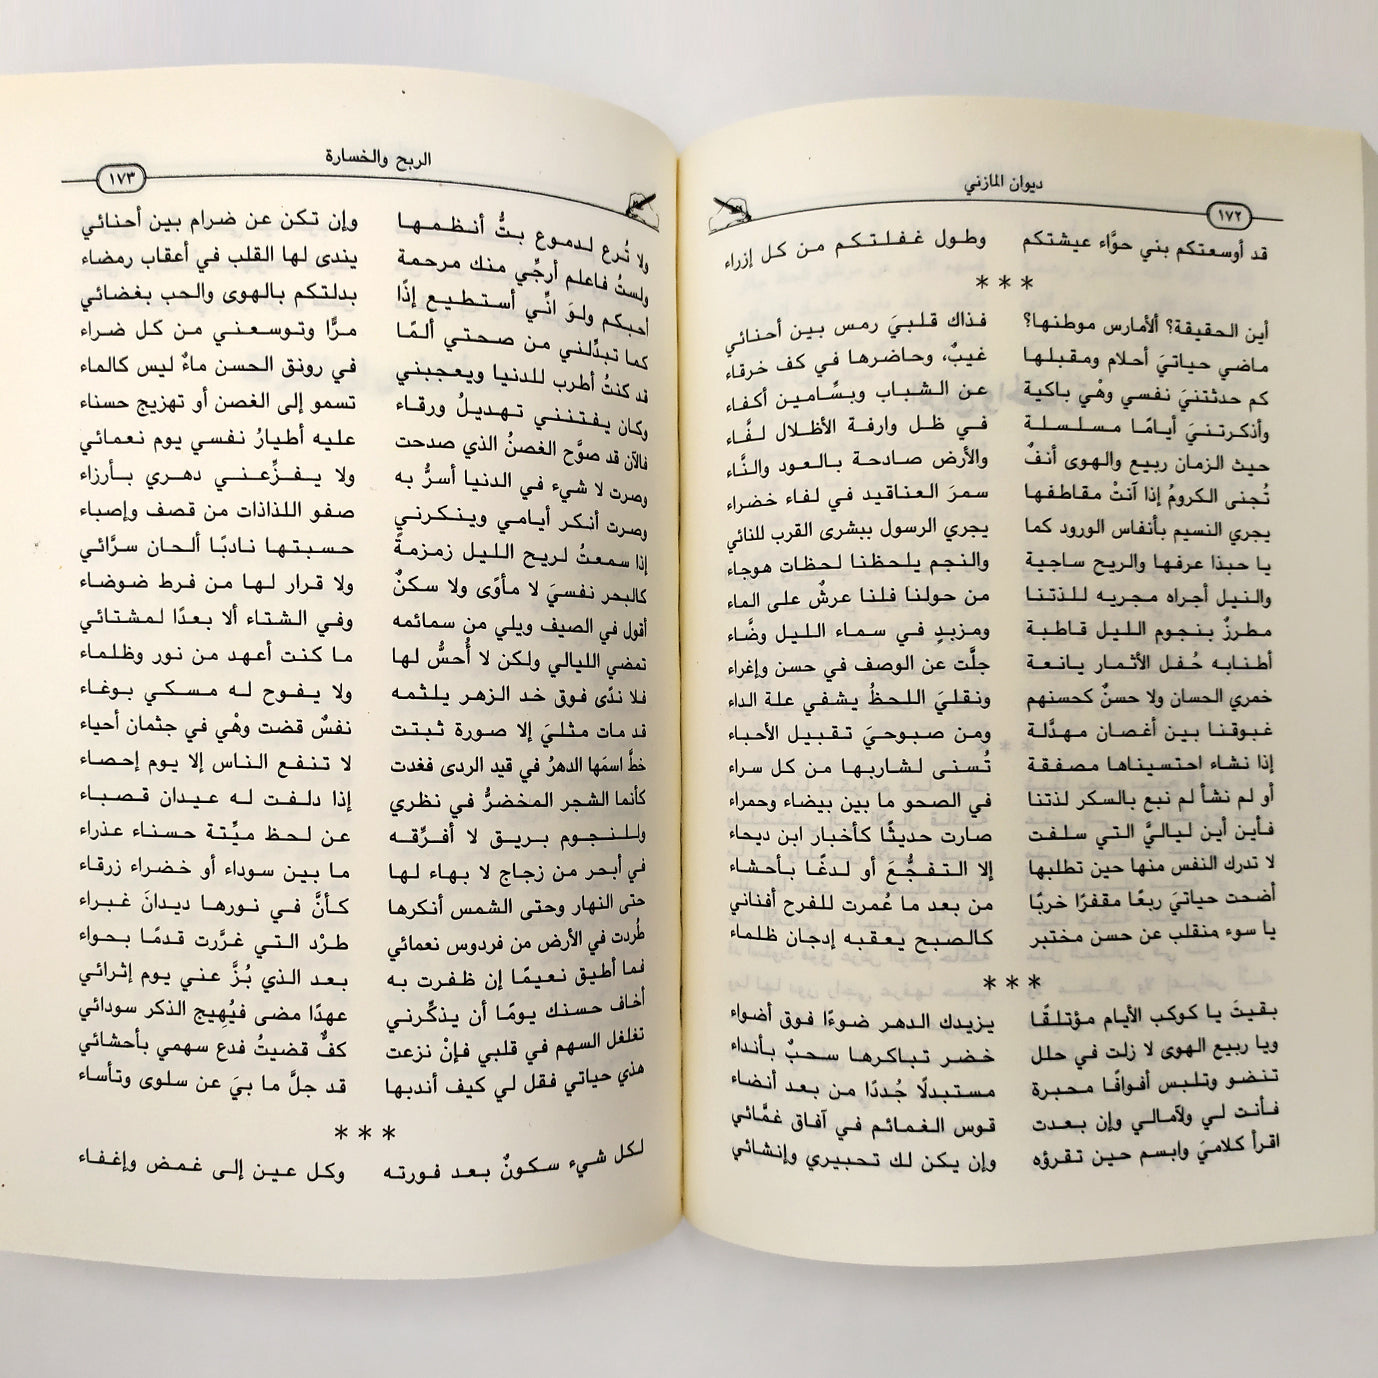 ديوان المازني
١٧٢
قد أوسعتكم بني حوَّاء عيشتكم وطول غفلتكم من كل إزراء
***
أين الحقيقة؟ ألأمارس موطنها؟ فذاك قلبيَ رمس بين أحنائي
ماضي حياتيَ أحلام ومقبلها غيبٌ، وحاضرها في كف خرقاء
كم حدثتنيَ نفسي وهْي باكية عن الشباب وبسَّامين أكفاء
وأذكرتنيَ أيامًا مسلسلة في ظل وارفة الأظلال لفَّاء
حيث الزمان ربيع والهوى أنفٌ والأرض صادحة بالعود والنَّاء
تُجنى الكرومُ إذا آنتْ مقاطفها سمرَ العناقيد في لفاء خضراء
يجري النسيم بأنفاس الورود كما يجري الرسول ببشرى القرب للنائي
يا حبذا عرفها والريح ساجية والنجم يلحظنا لحظات هوجاء
والنيل أجراه مجريه للذتنا من حولنا فلنا عرشٌ على الماء
مطرزٌ بنجوم الليل قاطبة ومزبدٍ في سماء الليل وضَّاء
أطنابه حُفل الأثمار يانعة جلَّت عن الوصف في حسن وإغراء
خمري الحسان ولا حسنٌ كحسنهم ونقليَ اللحظُ يشفي علة الداء
غبوقنا بين أغصان مهدَّلة ومن صبوحيَ تقبيل الأحباء
إذا نشاء احتسيناها مصفقة تُسنى لشاربها من كل سراء
أو لم نشأ لم نبع بالسكر لذتنا في الصحو ما بين بيضاء وحمراء
فأين أين لياليَّ التي سلفت صارت حديثًا كأخبار ابن ديحاء
لا تدرك النفس منها حين تطلبها إلا التفجُّعَ أو لدغًا بأحشاء
أضحت حياتيَ ربعًا مقفرًا خربًا من بعد ما عُمرت للفرح أفناني
يا سوء منقلب عن حسن مختبر كالصبح يعقبه إدجان ظلماء
***
بقيتَ يا كوكب الأيام مؤتلقًا يزيدك الدهر ضوءًا فوق أضواء
ويا ربيع الهوى لا زلت في حلل خضر تباكرها سحبٌ بأنداء
تنضو وتلبس أفوافًا محبرة مستبدلًا جُددًا من بعد أنضاء
فأنت لي ولآمالي وإن بعدت قوس الغمائم في آفاق غمَّائي
اقرأ كلاميَ وابسم حين تقرؤه وإن يكن لك تحبيري وإنشائي
الربح والخسارة
١٧٣
ولا تُرع لدموع بتُّ أنظمها وإن تكن عن ضرام بين أحنائي
ولستُ فاعلم أرجِّي منك مرحمة يندى لها القلب في أعقاب رمضاء
أحبكم ولوَ انِّي أستطيع إذًا بدلتكم بالهوى والحب بغضائي
كما تبدِّلني من صحتي ألمًا مرًّا وتوسعني من كل ضراء
قد كنتُ أطرب للدنيا ويعجبني في رونق الحسن ماءٌ ليس كالماء
وكان يفتنني تهديلُ ورقاء تسمو إلى الغصن أو تهزيج حسناء
فالآن قد صوَّح الغصنُ الذي صدحت عليه أطيارُ نفسي يوم نعمائي
وصرت لا شيء في الدنيا أسرُّ به ولا يفزِّعني دهري بأرزاء
وصرت أنكر أيامي وينكرني صفو اللذاذات من قصف وإصباء
إذا سمعتُ لريح الليل زمزمةً حسبتها نادبًا ألحان سرَّائي
كالبحر نفسيَ لا مأوًى ولا سكنٌ ولا قرار لها من فرط ضوضاء
أقول في الصيف ويلي من سمائمه وفي الشتاء ألا بعدًا لمشتائي
تمضي الليالي ولكن لا أُحسُّ لها ما كنت أعهد من نور وظلماء
فلا ندًى فوق خد الزهر يلثمه ولا يفوح له مسكي بوغاء
قد مات مثليَ إلا صورة ثبتت نفسٌ قضت وهْي في جثمان أحياء
خطَّ اسمَها الدهرُ في قيد الردى فغدت لا تنفع الناس إلا يوم إحصاء
كأنما الشجر المخضرُّ في نظري إذا دلفت له عيدان قصباء
وللنجوم بريق لا أفرِّقه عن لحظ ميِّتة حسناء عذراء
في أبحر من زجاج لا بهاء لها ما بين سوداء أو خضراء زرقاء
حتى النهار وحتى الشمس أنكرها كأنَّ في نورها ديدانَ غبراء
طُردت في الأرض من فردوس نعمائي طرْد التي غرَّرت قدمًا بحواء
فما أطيق نعيمًا إن ظفرت به بعد الذي بُزَّ عني يوم إثرائي
أخاف حسنك يومًا أن يذكِّرني عهدًا مضى فيُهيج الذكر سودائي
تغلغل السهم في قلبي فإنْ نزعت كفٌّ قضيتُ فدع سهمي بأحشائي
هذي حياتي فقل لي كيف أندبها قد جلَّ ما بيَ عن سلوى وتأساء
***
لكل شيء سكونٌ بعد فورته وكل عين إلى غمض وإغفاء